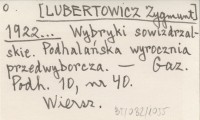 O. [LUBERTOWICZ Zygmunt]
1922... Wybryki sowizdrzal-
skie. Podhalańska wyrocznia
przedwyborcza. — Gaz.
Podh. 10, nr 40.
Wiersz.